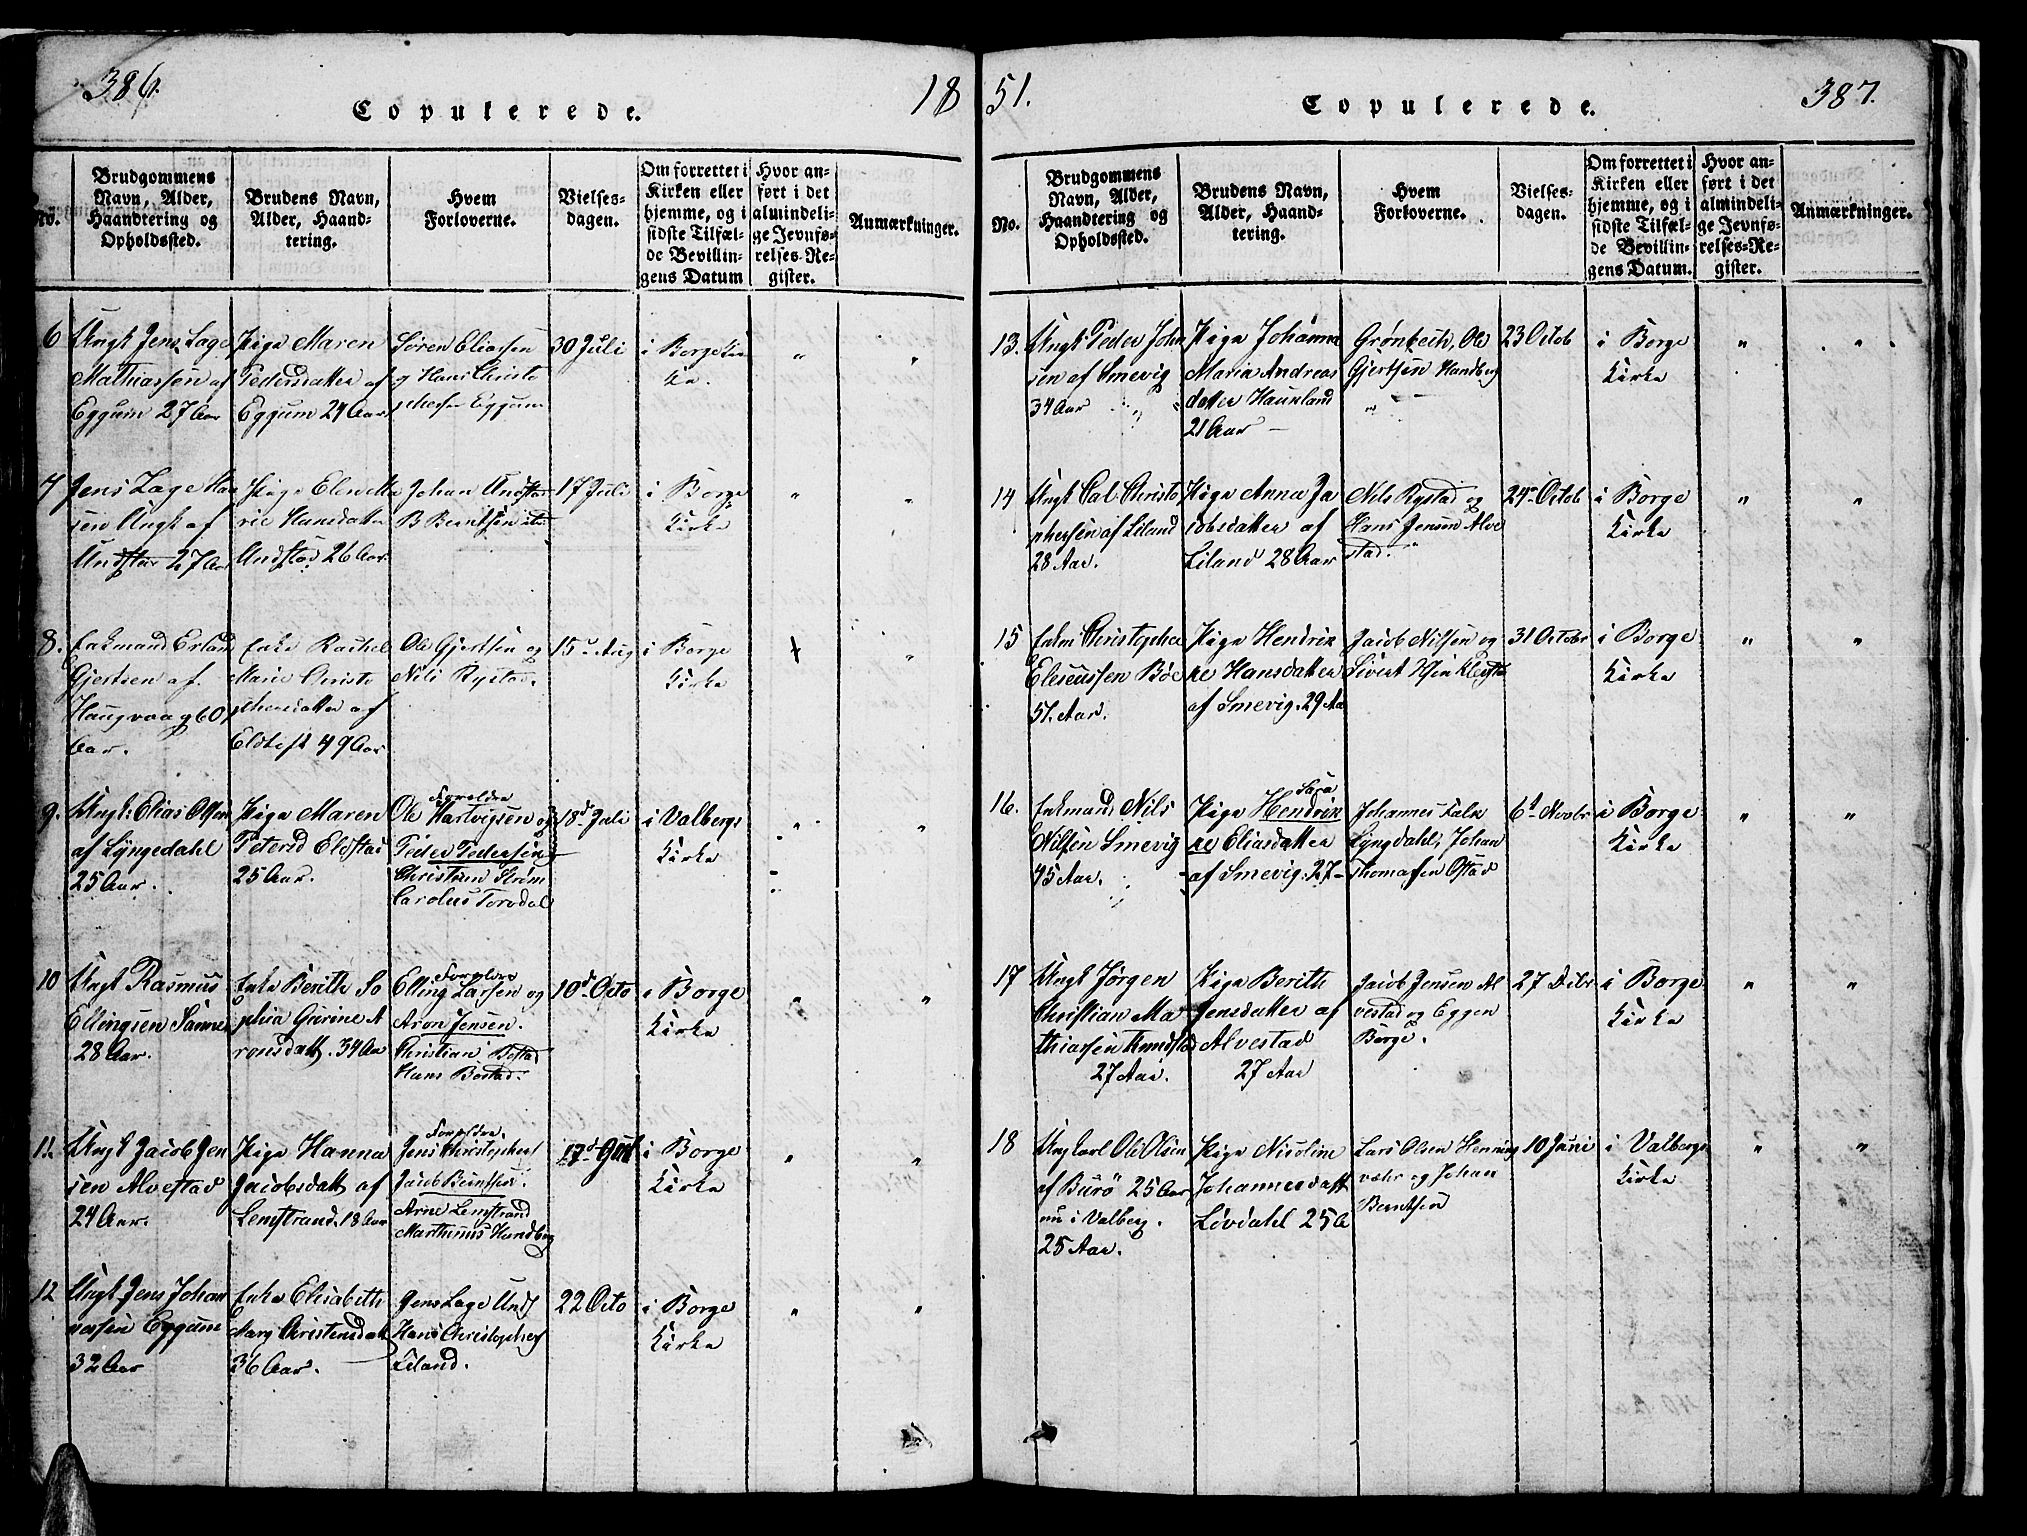 386.
Copulerede.
18
No.
Brudgommens
Navn, Alder,
Haandtering og
Opholdssted.
Brudens Navn,
Alder, Haand-
tering.
Hvem
Forloverne.
Vielses-
dagen.
Om forrettet i
Kirken eller
hjemme, og i
sidste Tilfæl-
de Bevillin-
gens Datum
Hvor an-
ført i det
almindeli-
ge Jevnfø-
relses-Re-
gister.
Anmærkninger.
6
Ungk Jens Lage
Mathiassen af
Eggum 27 Aar
Pige Maren
Pedersdatter af
Eggum 24 Aar
Sören Eliassen
og Hans Christo
phersen Eggum
30 Juli
i Borge
7
Jens Lage Han
sen Ungk af
27 Aar
Pige
rie Hansdatter
Undstad 26 Aar
Johan Undstad
B Berntsen
17 Juli
i Borge
Kirke
8.
Enkmand Erland
Gjertsen af
Haugvaag 60
Aar.
Enke Rachel
Marie Christo
phersdatter af
49 Aar
Ole Gjertsen og
Nils Rystad.
15 Aug
i Borge
Kirke
9.
Ungk: Elias Olsen
af Lyngedahl
25 Aar.
Pige Maren
Petersd
25 Aar.
Foreldre
Ole Hartvigsen og
Peder Pedersen
Christian Strøm
Carolus Torvdal
18d Juli
i Valbergs
Kirke
10
Ungk Rasmus
Ellingsen
28 Aar.
Enke Berith So
phia Gurine A
ronsdatt. 34 Aar
Foreldre
Elling Larsen og
Aron Jensen.
Christian Bostad
Hans Bostad.
10d Octo
i Borge
Kirke
11.
Ungk Jacob Jen
sen Alvestad
24 Aar.
Pige Hanna
Jacobsdatt af
Lemstrand. 18 Aar
Foreldre.
Jens Christophers
Jacob Berntsen.
Arne Lemstrand
Marthinus Handberg
i Borge
Kirke
12
Ungk Jens Johan
nesen Eggum
32 Aar
Enke Elisabeth
Marg Christensdatt
36 Aar.
Jens Lage Unds
Hans Christophers
Liland.
22 Octo
i Borge
Kirke
51.
Copulerede.
387.
No.
Brudgommens
Navn, Alder,
Haandtering og
Opholdssted.
Brudens Navn,
Alder, Haand-
tering.
Hvem
Forloverne.
Vielses-
dagen.
Om forrettet i
Kirken eller
hjemme, og i
sidste Tilfæl-
de Bevillin-
gens Datum.
Hvor an-
ført i det
almindeli-
ge Jevnfø-
relses-Re-
gister.
Anmærkninger.
13.
Ungk: Peder John
sen af Smevig
34 Aar
Pige Johanna
Maria Andreas
datter Haunland
21 Aar
Grønbech, Ole
Gjertsen Handberg
23 Octob
i Borge
Kirke
14
Ungk Carl Christo
phersen af Liland
28 Aar.
Pige Anna Ja
cobsdatter af
Liland 28 Aar
Nils Rystad og
Hans Jensen Alve
stad.
24 Octob
i Borge
Kirke
15
Enkm Christopher
Eleseussen Böe
51. Aar.
Pige Hendrik
ke Hansdatter
af Smevig. 29 Aa
Jacob Nilsen og
Sivert
31 Octobr
i Borge
Kirke
16.
Enkmand Nils
Nilsen Smevig
45 Aar.
Sara
Pige Hendrik
ke Eliasdatter
af Smevig. 27
Johannes Falk
Lyngdahl, Johan
Thomasen Ostad
6d Novbr
i Borge
Kirke
17
Ungk Jörgen
Christian Ma
thiassen
27 Aar.
Pige Berith
Jensdatter af
Alvestad
27 Aar
Jacob Jensen Al
vestad og Eggen
Borge.
27 Decbr
i Borge
Kirke
18
Ungkarl Ole Olsen
af Burö 25 Aar
nu i Valberg.
25 Aar.
Pige Nicoline
Johannesdatt
Lövdahl 25 A
Lars Olsen Henning
vær og Johan
Berntsen
10 Juni
i Valbergs
Kirke